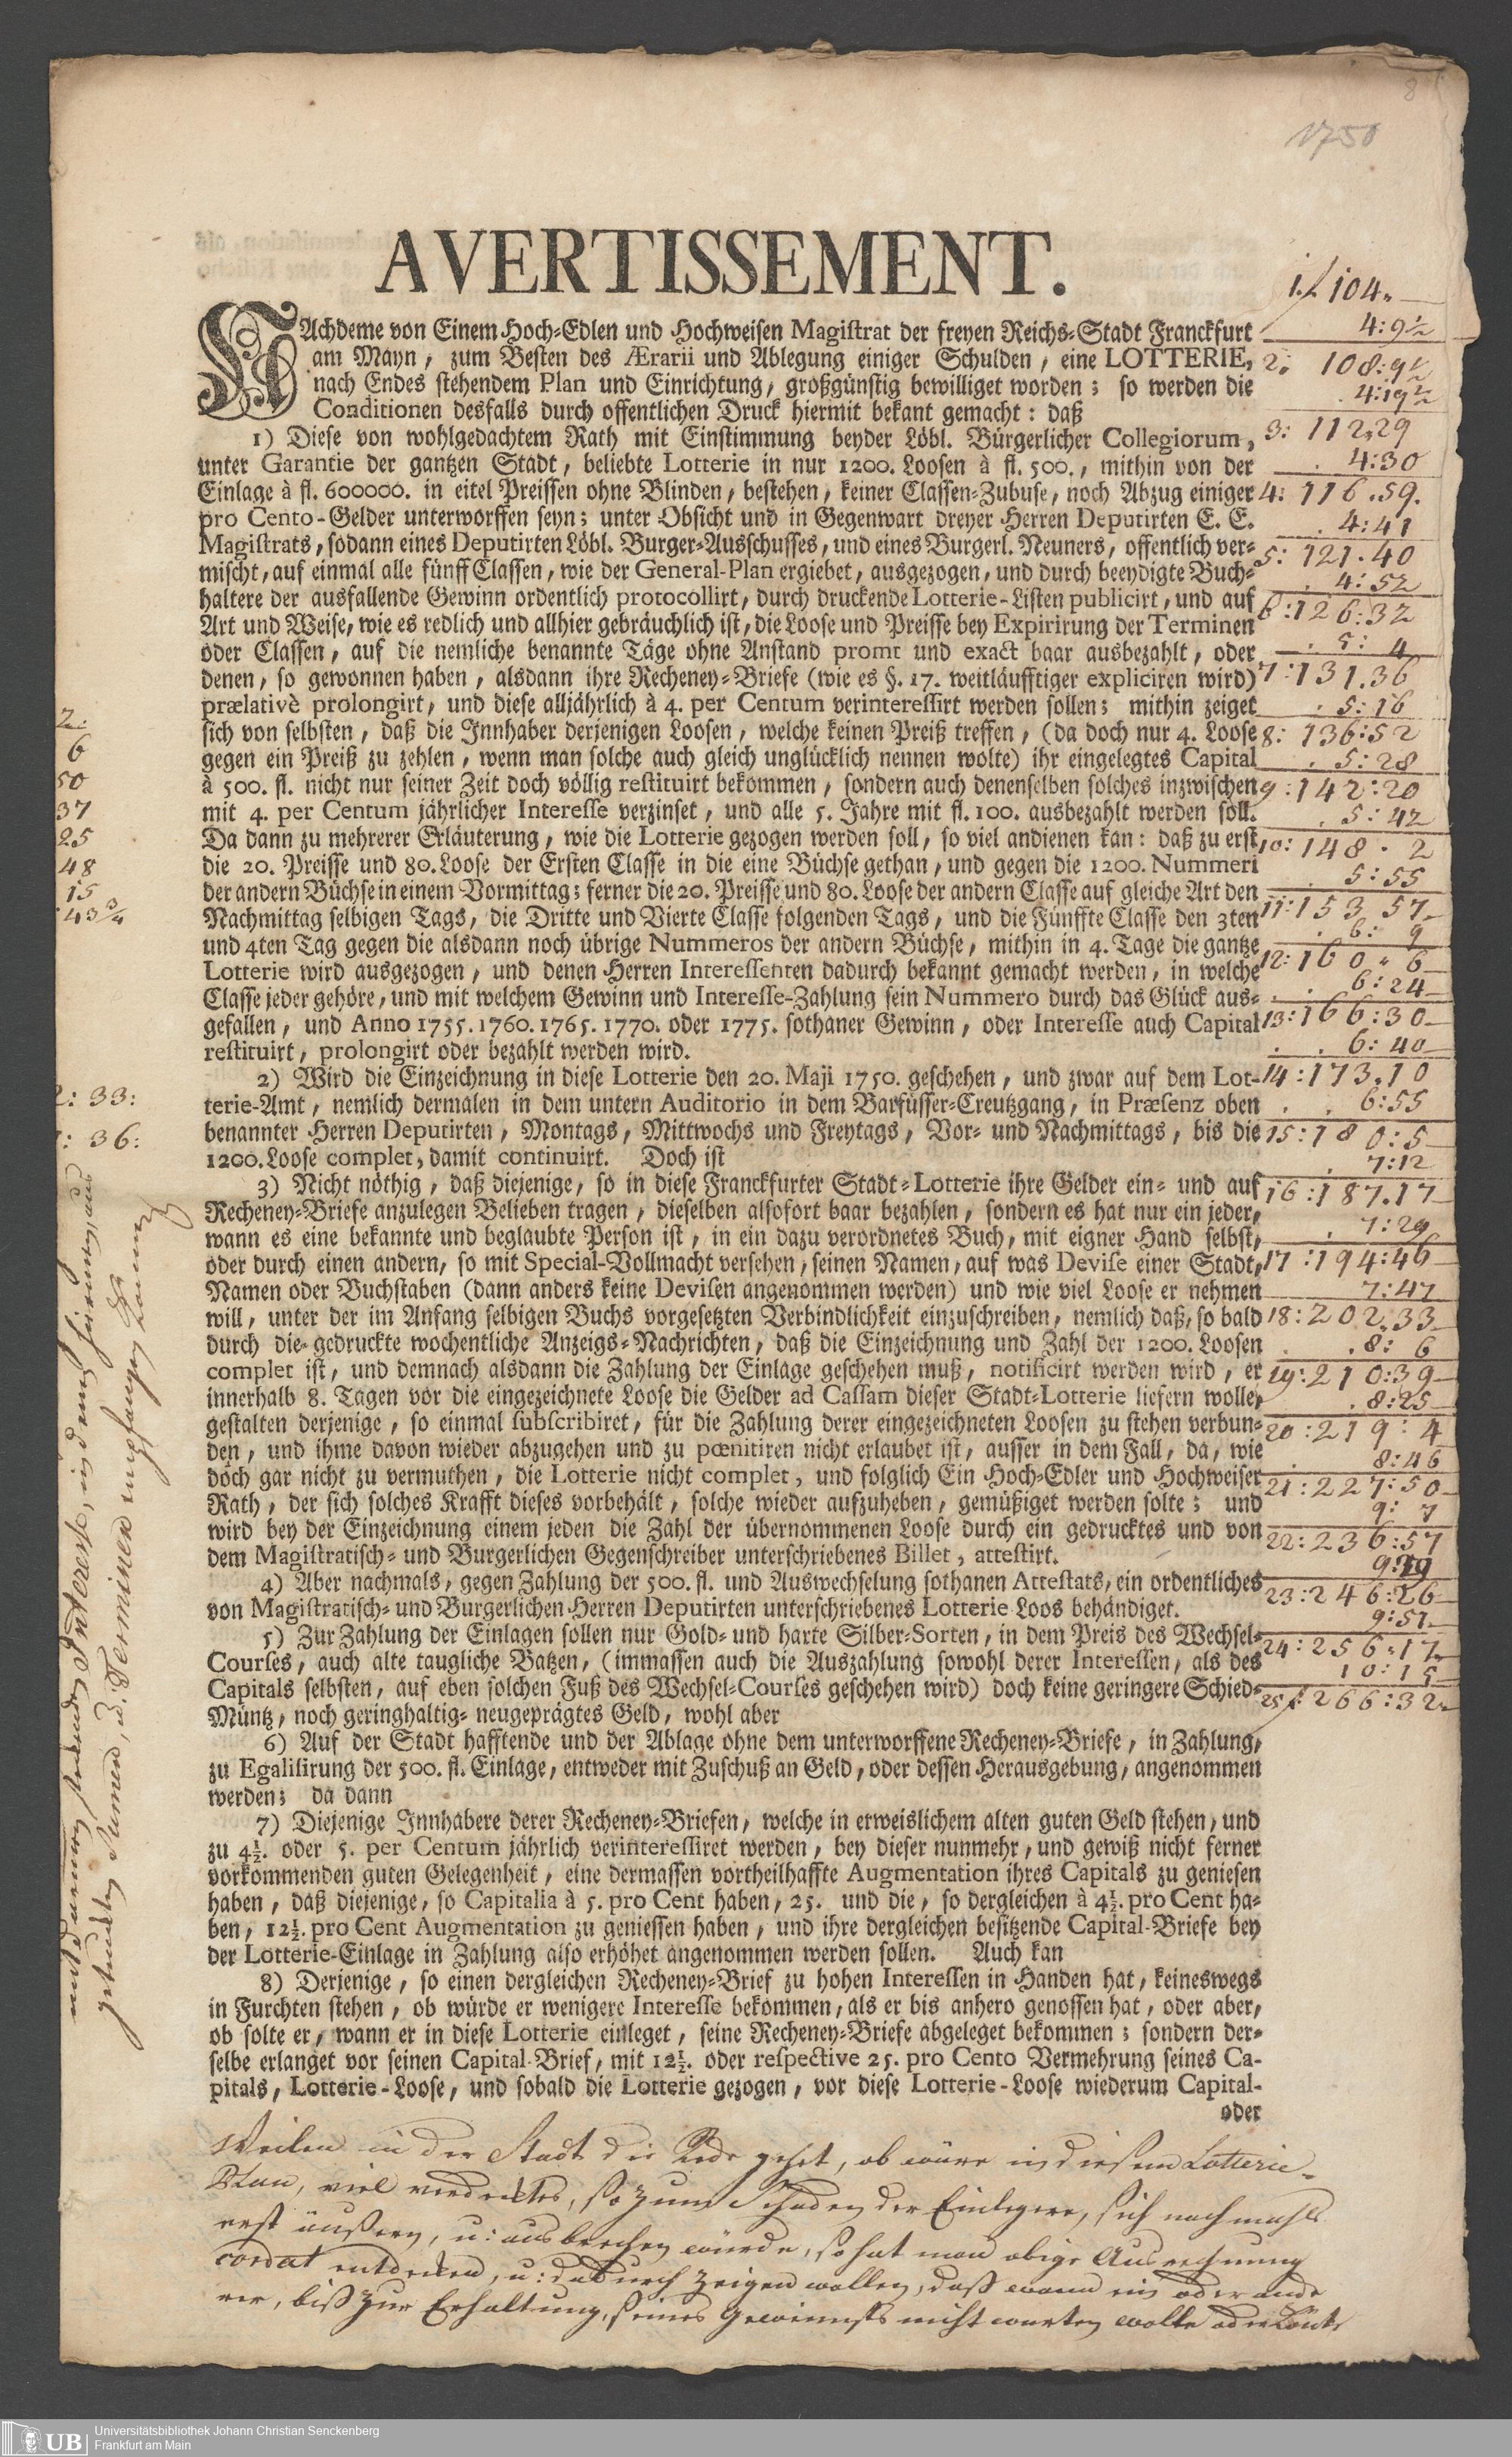 8
1750
AVERTISSEMENT.
NAchdeme von Einem Hoch-Edlen und Hochweisen Magistrat der freyen Reichs-Stadt Franckfurt
am Mayn, zum Besten des Ærarii und Ablegung einiger Schulden, eine LOTTERIE,
nach Endes stehendem Plan und Einrichtung, großgünstig bewilliget worden; so werden die
Conditionen desfalls durch offentlichen Druck hiermit bekant gemacht: daß
1) Diese von wohlgedachtem Rath mit Einstimmung beyder Löbl. Bürgerlicher Collegiorum,
unter Garantie der gantzen Stadt, beliebte Lotterie in nur 1200. Loosen à fl. 500., mithin von der
Einlage à fl. 600000. in eitel Preissen ohne Blinden, bestehen, keiner Classen-Zubuse, noch Abzug einiger
pro Cento-Gelder unterworffen seyn; unter Obsicht und in Gegenwart dreyer Herren Deputirten E. E.
Magistrats, sodann eines Deputirten Löbl. Burger-Ausschusses, und eines Burgerl. Neuners, offentlich ver-
mischt, auf einmal alle fünff Classen, wie der General-Plan ergiebet, ausgezogen, und durch beeydigte Buch-
haltere der ausfallende Gewinn ordentlich protocollirt, durch druckende Lotterie-Listen publicirt, und auf
Art und Weise, wie es redlich und allhier gebräuchlich ist, die Loose und Preisse bey Expirirung der Terminen
oder Classen, auf die nemliche benannte Täge ohne Anstand promt und exact baar ausbezahlt, oder
denen, so gewonnen haben, alsdann ihre Recheney-Briefe (wie es §. 17. weitläufftiger expliciren wird)
prælativè prolongirt, und diese alljährlich à 4. per Centum verinteressirt werden sollen; mithin zeiget
sich von selbsten, daß die Innhaber derjenigen Loosen, welche keinen Preiß treffen, (da doch nur 4. Loose
gegen ein Preiß zu zehlen, wenn man solche auch gleich unglücklich nennen wolte) ihr eingelegtes Capital
à 500. fl. nicht nur seiner Zeit doch völlig restituirt bekommen, sondern auch denenselben solches inzwischen
mit 4. per Centum jährlicher Interesse verzinset, und alle 5. Jahre mit fl. 100. ausbezahlt werden soll.
Da dann zu mehrerer Erläuterung, wie die Lotterie gezogen werden soll, so viel andienen kan: daß zu erst
die 20. Preisse und 80. Loose der Ersten Classe in die eine Büchse gethan, und gegen die 1200. Nummeri
der andern Büchse in einem Vormittag; ferner die 20. Preisse und 80. Loose der andern Classe auf gleiche Art den
Nachmittag selbigen Tags, die Dritte und Vierte Classe folgenden Tags, und die Fünffte Classe den 3ten
und 4ten Tag gegen die alsdann noch übrige Nummeros der andern Büchse, mithin in 4. Tage die gantze
Lotterie wird ausgezogen, und denen Herren Interessenten dadurch bekannt gemacht werden, in welche
Classe jeder gehöre, und mit welchem Gewinn und Interesse-Zahlung sein Nummero durch das Glück aus-
gefallen, und Anno 1755. 1760. 1765. 1770. oder 1775. sothaner Gewinn, oder Interesse auch Capital
restituirt, prolongirt oder bezahlt werden wird.
2) Wird die Einzeichnung in diese Lotterie den 20. Maji 1750. geschehen, und zwar auf dem Lot-
terie-Amt, nemlich dermalen in dem untern Auditorio in dem Barfüsser-Creutzgang, in Præsenz oben
benannter Herren Deputirten, Montags, Mittwochs und Freytags, Vor- und Nachmittags, bis die
1200. Loose complet, damit continuirt. Doch ist
3) Nicht nöthig, daß diejenige, so in diese Franckfurter Stadt-Lotterie ihre Gelder ein- und auf
Recheney-Briefe anzulegen Belieben tragen, dieselben alsofort baar bezahlen, sondern es hat nur ein jeder,
wann es eine bekannte und beglaubte Person ist, in ein dazu verordnetes Buch, mit eigner Hand selbst,
oder durch einen andern, so mit Special-Vollmacht versehen, seinen Namen, auf was Devise einer Stadt,
Namen oder Buchstaben (dann anders keine Devisen angenommen werden) und wie viel Loose er nehmen
will, unter der im Anfang selbigen Buchs vorgesetzten Verbindlichkeit einzuschreiben, nemlich daß, so bald
durch die gedruckte wochentliche Anzeigs-Nachrichten, daß die Einzeichnung und Zahl der 1200. Loosen
complet ist, und demnach alsdann die Zahlung der Einlage geschehen muß, notificirt werden wird, er
innerhalb 8. Tagen vor die eingezeichnete Loose die Gelder ad Cassam dieser Stadt-Lotterie liefern wolle,
gestalten derjenige, so einmal subscribiret, für die Zahlung derer eingezeichneten Loosen zu stehen verbun-
den, und ihme davon wieder abzugehen und zu pœnitiren nicht erlaubet ist, ausser in dem Fall, da, wie
doch gar nicht zu vermuthen, die Lotterie nicht complet, und folglich Ein Hoch-Edler und Hochweiser
Rath, der sich solches Krafft dieses vorbehält, solche wieder aufzuheben, gemüßiget werden solte; und
wird bey der Einzeichnung einem jeden die Zahl der übernommenen Loose durch ein gedrucktes und von
dem Magistratisch- und Burgerlichen Gegenschreiber unterschriebenes Billet, attestirt.
4) Aber nachmals, gegen Zahlung der 500. fl. und Auswechselung sothanen Attestats, ein ordentliches
von Magistratisch- und Burgerlichen Herren Deputirten unterschriebenes Lotterie Loos behändiget.
5) Zur Zahlung der Einlagen sollen nur Gold- und harte Silber-Sorten, in dem Preis des Wechsel-
Courses, auch alte taugliche Batzen, (immassen auch die Auszahlung sowohl derer Interessen, als des
Capitals selbsten, auf eben solchen Fuß des Wechsel-Courses geschehen wird) doch keine geringere Schied-
Müntz, noch geringhaltig- neugeprägtes Geld, wohl aber
6) Auf der Stadt hafftende und der Ablage ohne dem unterworffene Recheney-Briefe, in Zahlung,
zu Egalisirung der 500. fl. Einlage, entweder mit Zuschuß an Geld, oder dessen Herausgebung, angenommen
werden; da dann
7) Diejenige Innhabere derer Recheney-Briefen, welche in erweislichem alten guten Geld stehen, und
zu 4½. oder 5. per Centum jährlich verinteressiret werden, bey dieser nunmehr, und gewiß nicht ferner
vorkommenden guten Gelegenheit, eine dermassen vortheilhaffte Augmentation ihres Capitals zu geniesen
haben, daß diejenige, so Capitalia à 5. pro Cent haben, 25. und die, so dergleichen à 4½. pro Cent ha-
ben, 12½. pro Cent Augmentation zu geniessen haben, und ihre dergleichen besitzende Capital-Briefe bey
der Lotterie-Einlage in Zahlung also erhöhet angenommen werden sollen. Auch kan
8) Derjenige, so einen dergleichen Recheney-Brief zu hohen Interessen in Handen hat, keineswegs
in Furchten stehen, ob würde er wenigere Interesse bekommen, als er bis anhero genossen hat, oder aber,
ob solte er, wann er in diese Lotterie einleget, seine Recheney-Briefe abgeleget bekommen; sondern der-
selbe erlanget vor seinen Capital-Brief, mit 12½. oder respective 25. pro Cento Vermehrung seines Ca-
pitals, Lotterie-Loose, und sobald die Lotterie gezogen, vor diese Lotterie-Loose wiederum Capital-
oder
Weilen in der Stadt die Rede gehet, ob wäre in diesem Lotterie-
Plan, viel verdecktes, so zum Schaden der Einlegere, sich nachmahls
erst äußern, u: ausbrechen würde, so hat man obige Ausrechnung
cordat entdecken, u: dadurch zeigen wollen, daß wann ein oder ande
rer, biß zur Erhaltung, seines Gewinnsts nicht warten wolte oder könte
1. f 104.
4:9½
2. 108:9½
4:19½
3: 112,29
4:30
4: 116.59.
4:41
5: 121.40
4:52
6: 126:32
5: 4
7: 131.36
5:16
8: 136:52
5:28
9: 142:20
5:42
10: 148. 2
5:55
11: 153 57
6: 9
12: 160. 6
6:24
13: 166:30
6:40
14: 173.10
6:55
15: 180:5
7:12
16: 187.17
7:29
17: 194:46
7:47
18: 202.33
8: 6
19: 210:39
8:25
20: 219: 4
8:46
21: 227:50
9: 7
22: 236:57
9:29
23: 246:26
9:51
24: 256.17
10:15
25 f: 266:32
2:
6
50
37
25
48
15
43¾
2: 33:
1: 36:
Interesse,
Terminen
UB Universitätsbibliothek Johann Christian Senckenberg
Frankfurt am Main